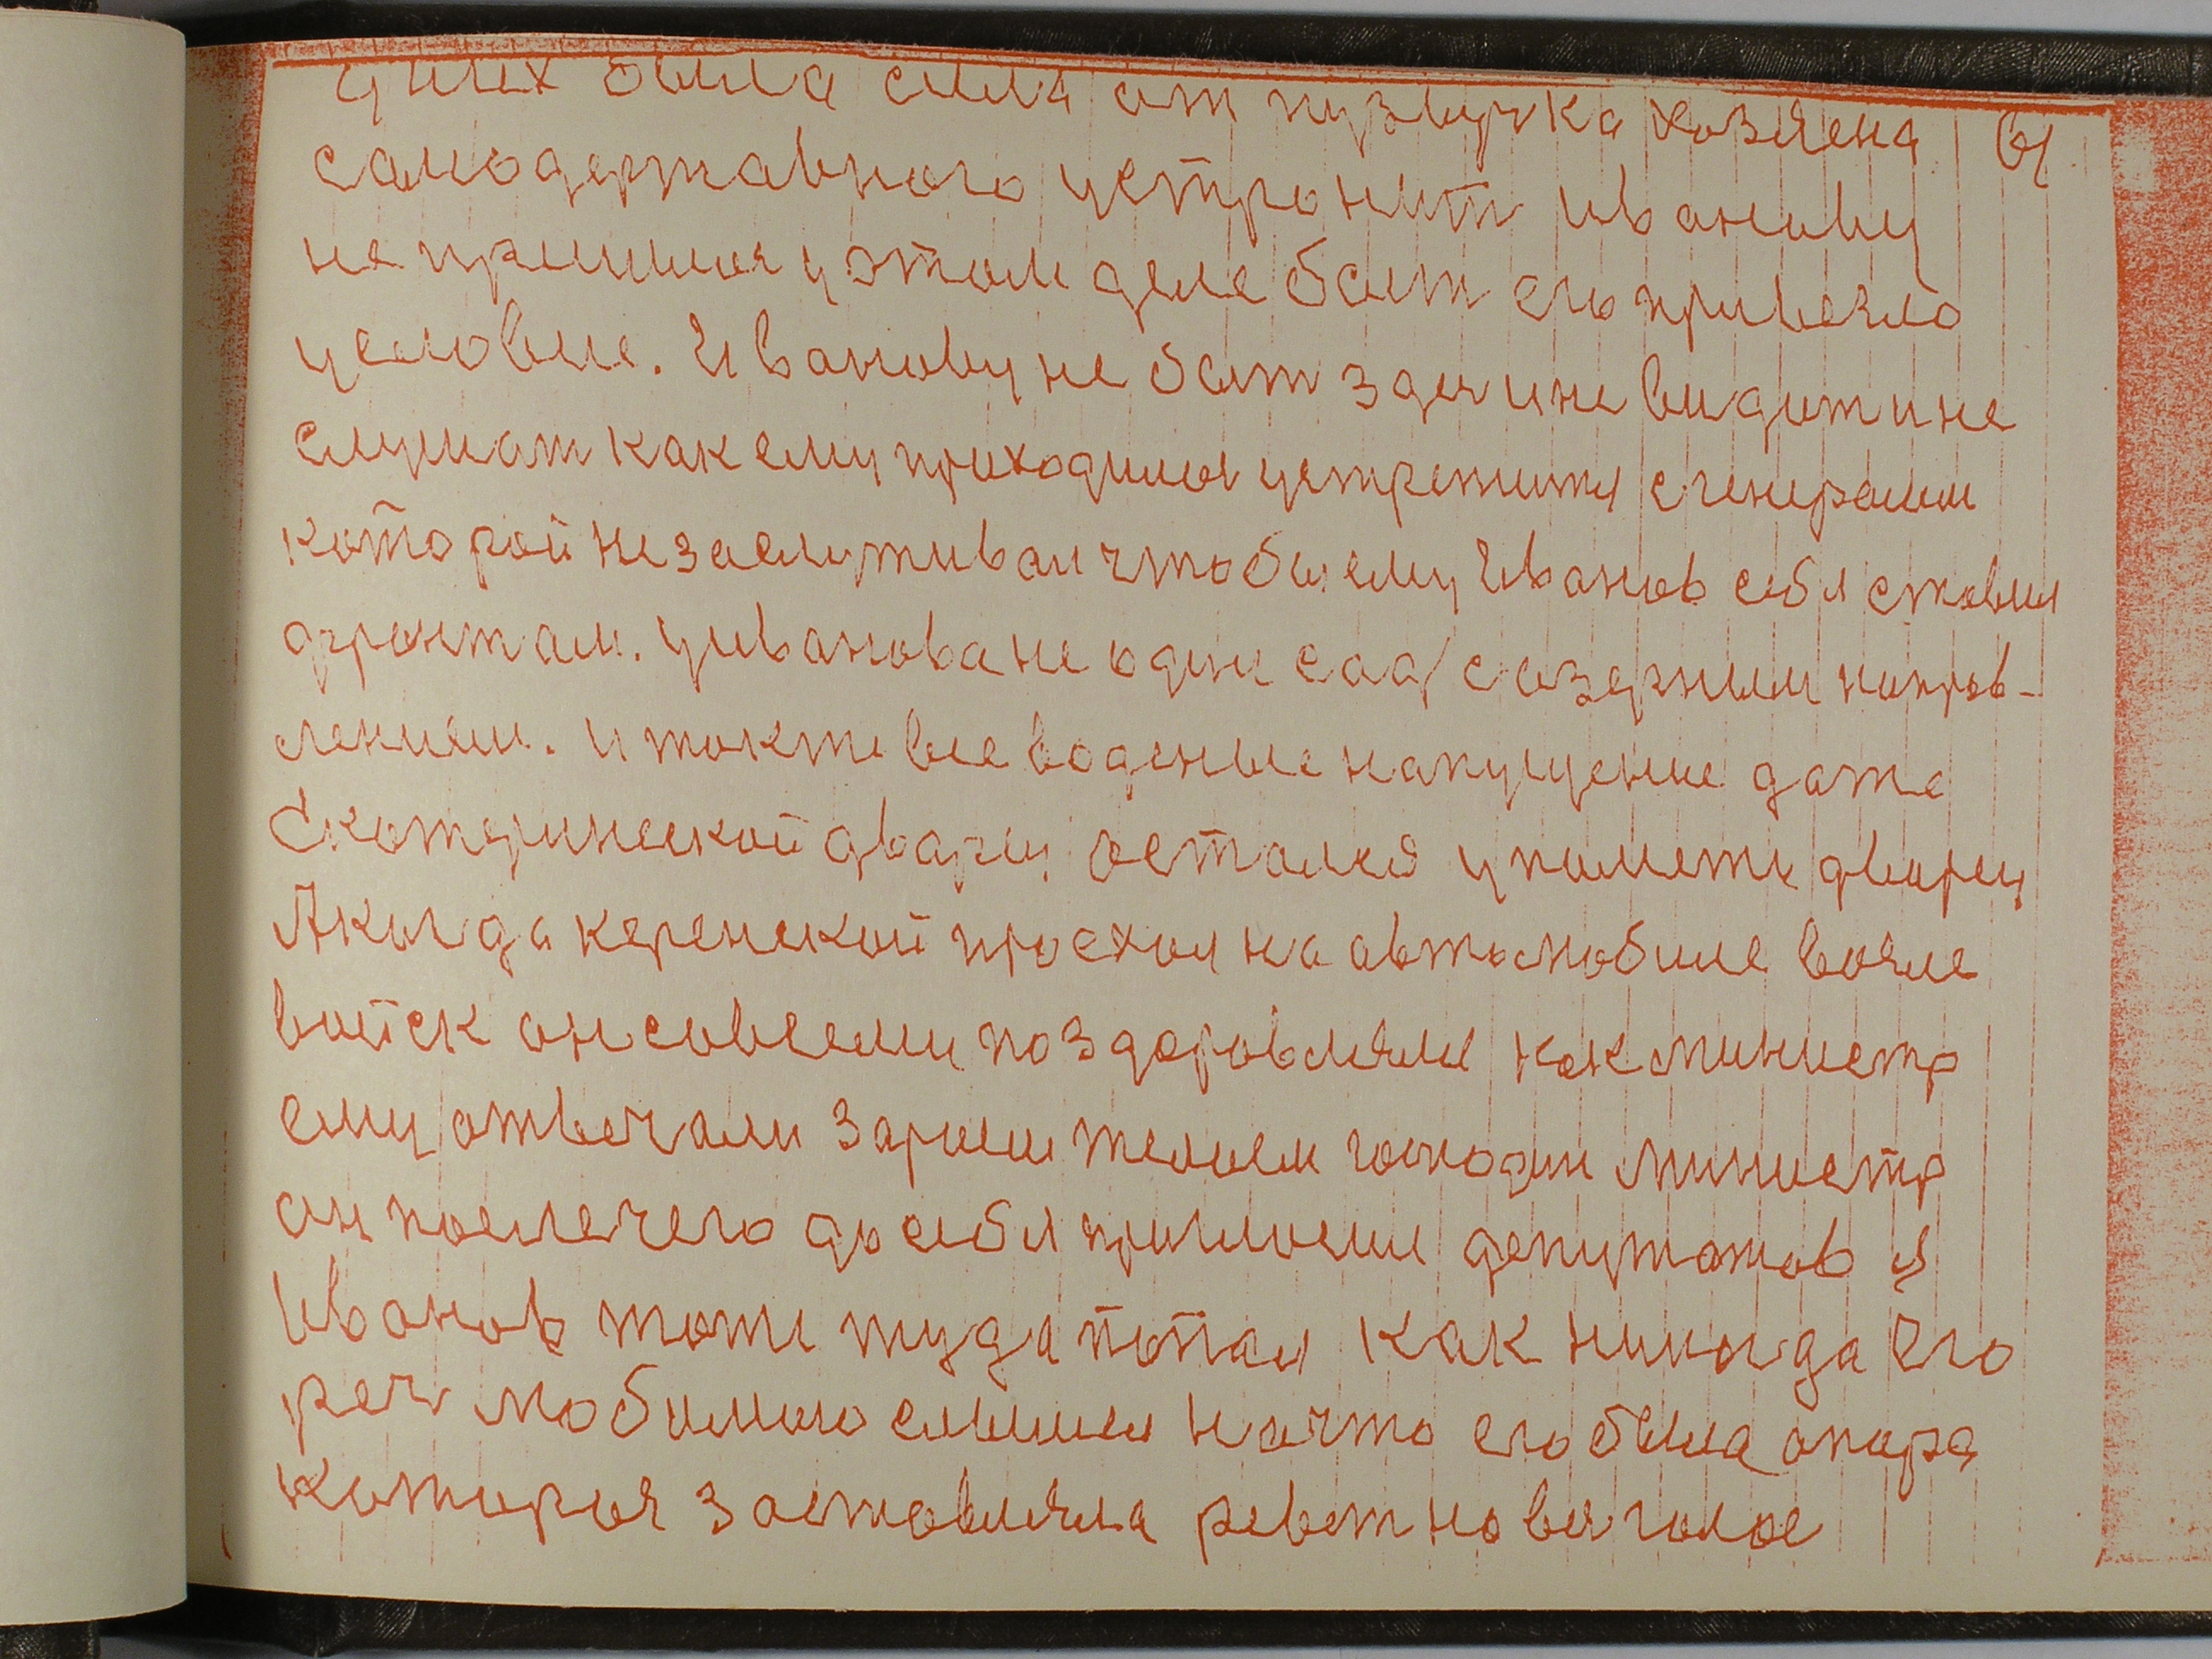 у них была сила от пузырка хозяена 61
самодержавного устронит иванову
не пришлоя у этом деле быт его привезло
условие. Иванову не быт здеч и не видит и не
слушат как ему приходилоя устретится с генералом
которой не заслуживал чтобы ему Иванов себя ставил
дгронтам. У иванова не один сад с озерным направ-
лением. И также все воденые напущение даже
Екатеринской дварец остался у памети дворец
А когда керенской проехал на автомобиле возле
войск он совсеми поздоровлялся как министр
ему отвечали здрием желаем господин министр
он после чего до себя пригласил депутатов я
Иванов тоже туда попал как никогда Его
реч любимою слышел на что его была опора
которая заставляла реват но вся голос